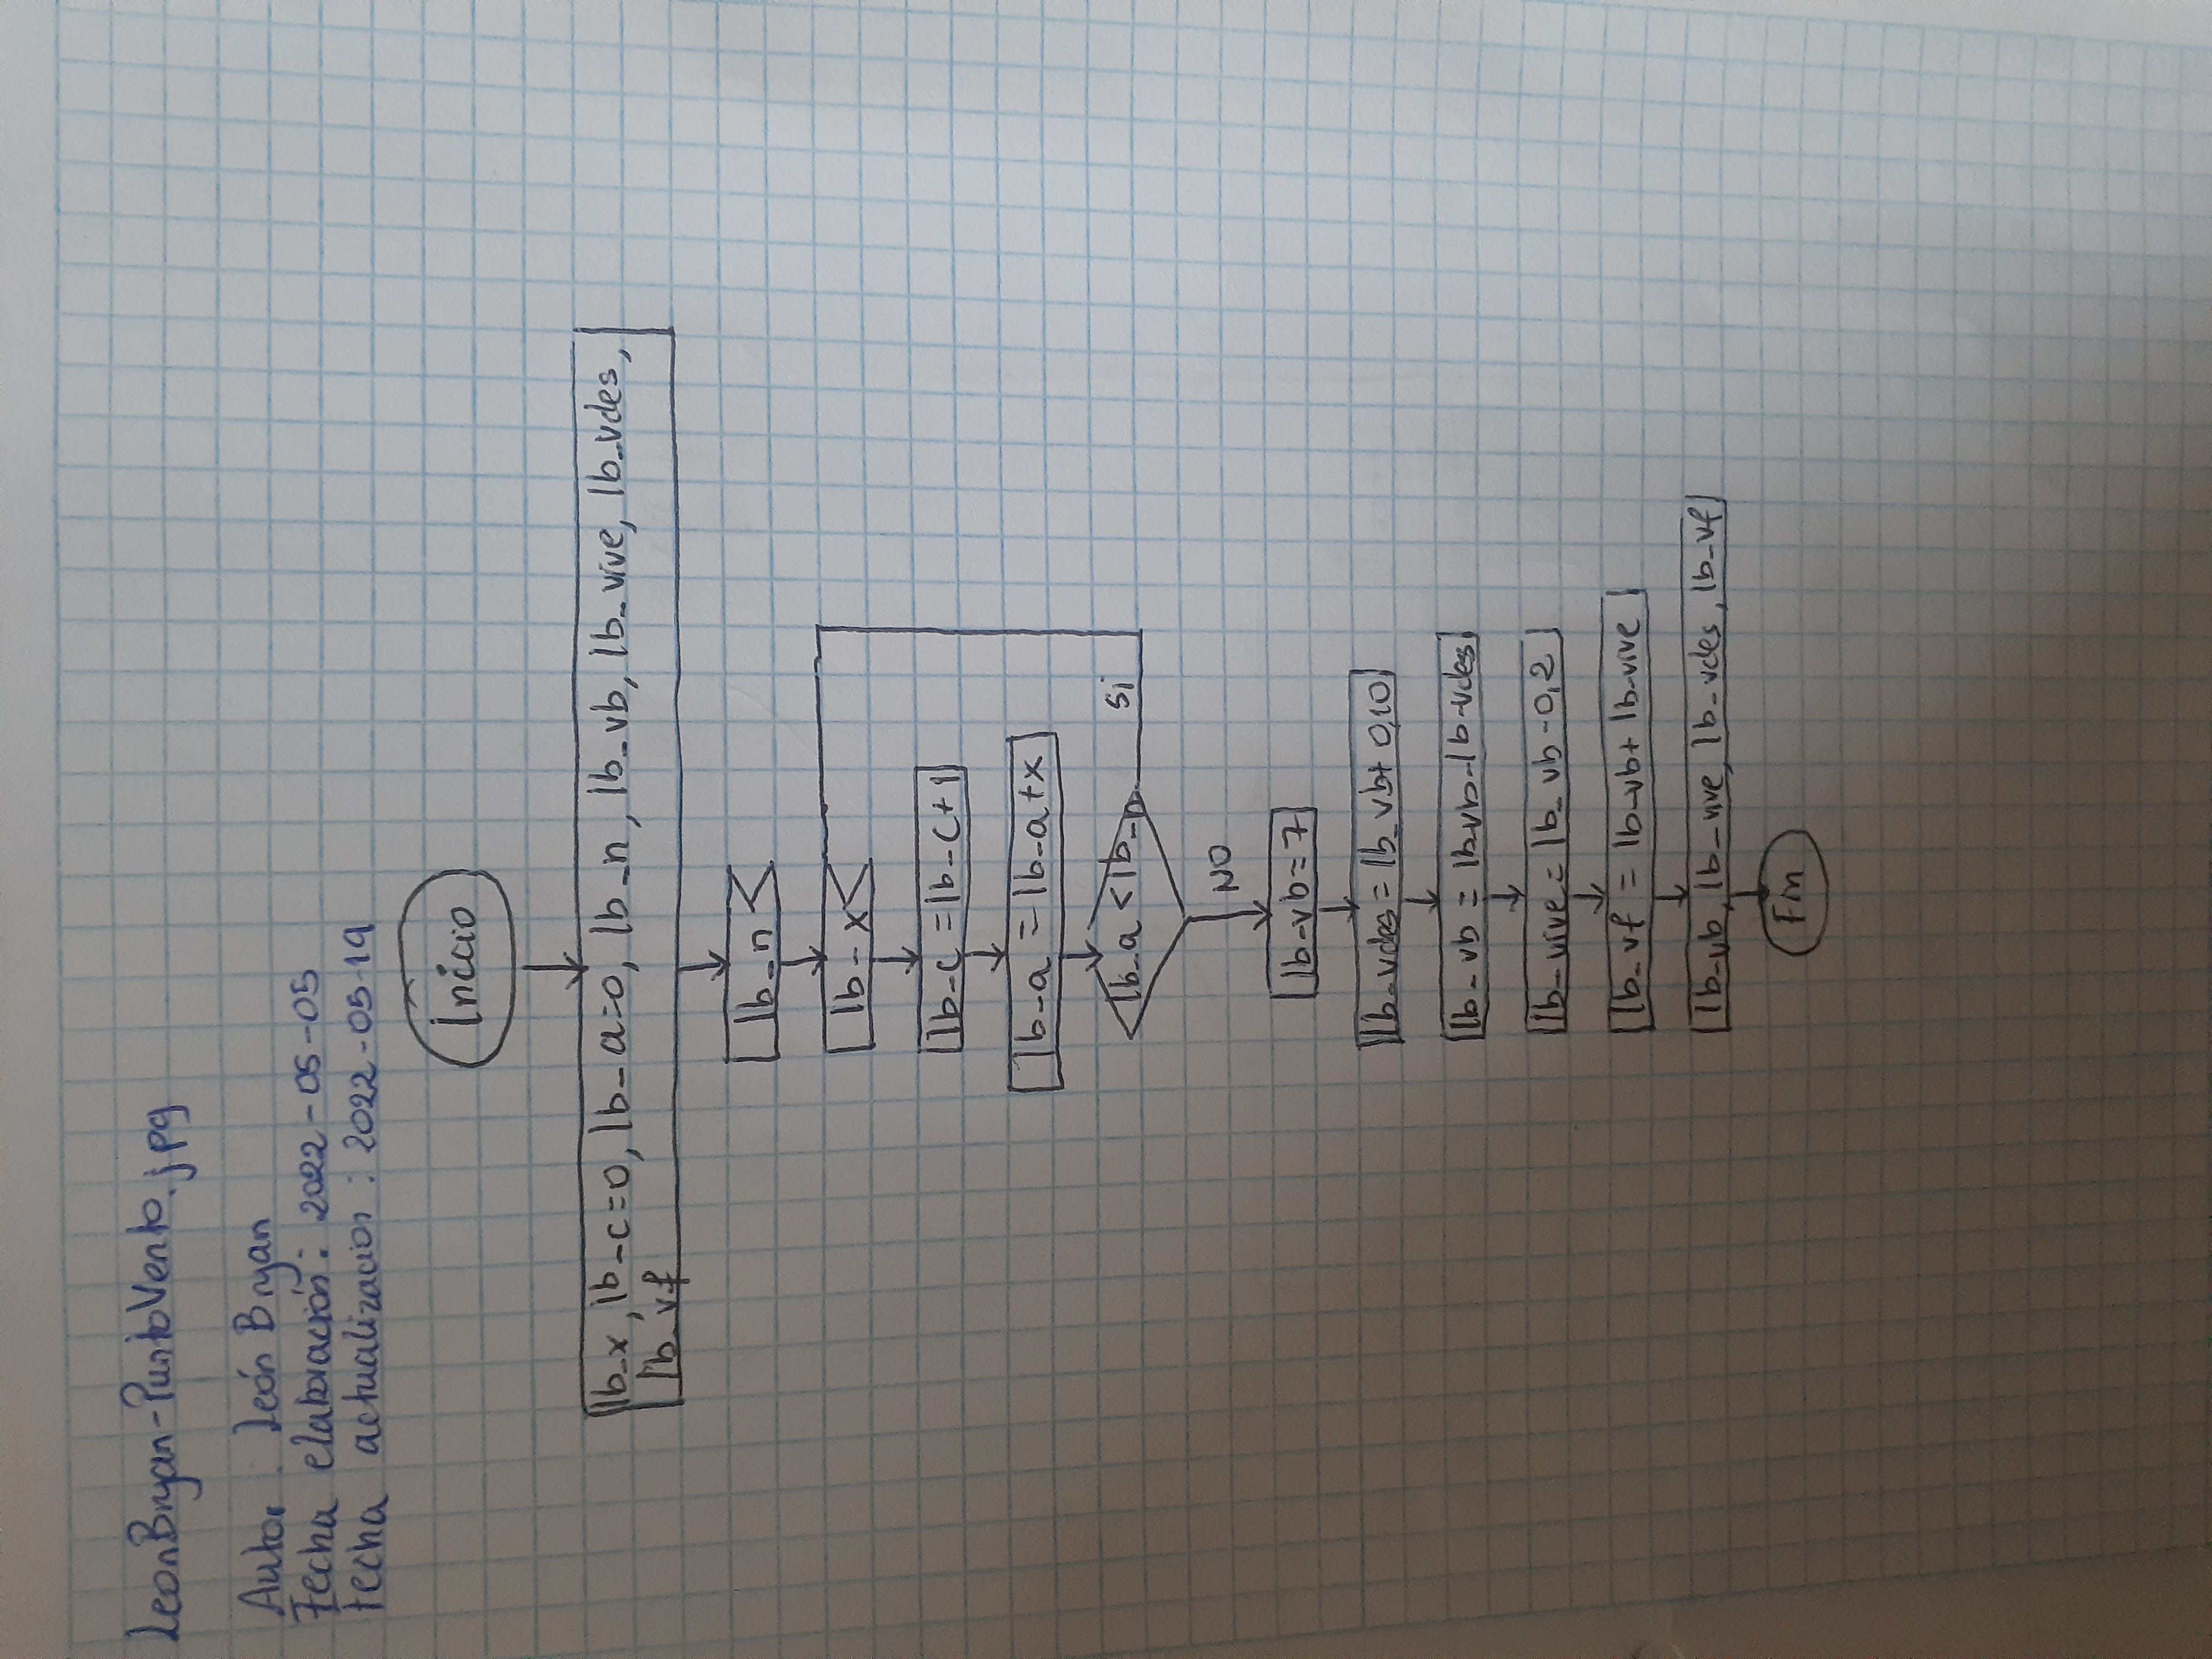 LeonBryan-PuntoVento.jpg
Autor. León Bryan
Fecha elaboración: 2022-05-05
fecha actualizacion: 2022-05-19
Inicio
lb_x, lb-c=0, lb-a=0, lb_n, lb_vb, lb_vive, lb_vdes,
lb_vf
lb_n
lb-x
lb-c = lb-c+1
lb-a = lb-a+x
lb_a < lb_n
si
NO
lb-vb=7
lb-vdes = lb_vb+ 0,10
lb-vb = lb-vb-lb-vdes
lb-vive = lb_vb-0,2
lb-vf = lb-vb+ lb-vive
lb-vb, lb-vive, lb-vdes, lb-vf
Fin